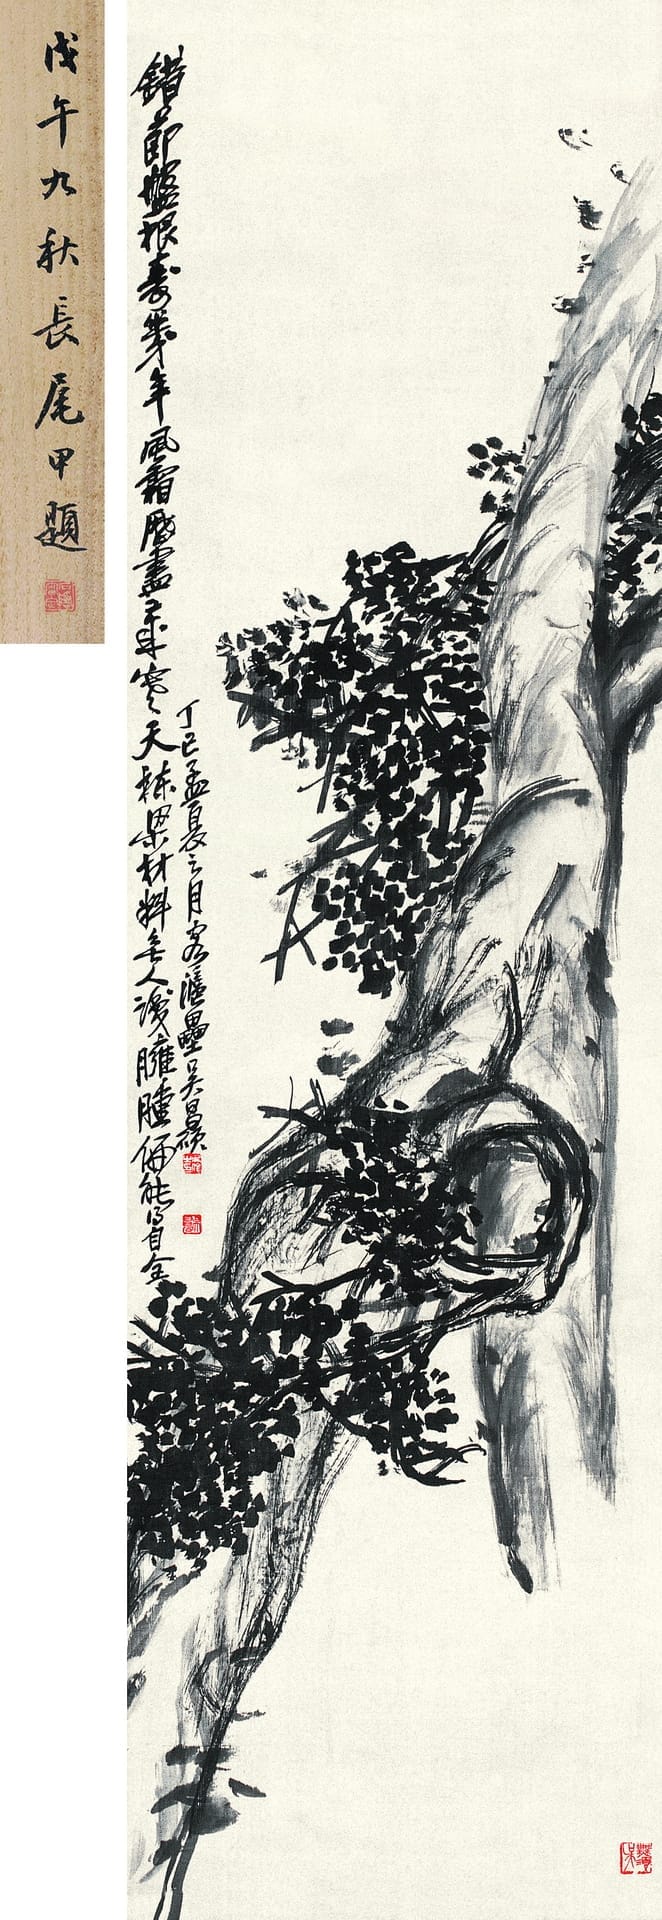 戊午九秋長尾甲題
錯節盤根壽幾年風霜歷盡歲寒天棟梁材料無人識臃腫偏能得自全
丁巳孟夏之月客滬壘吳昌碩